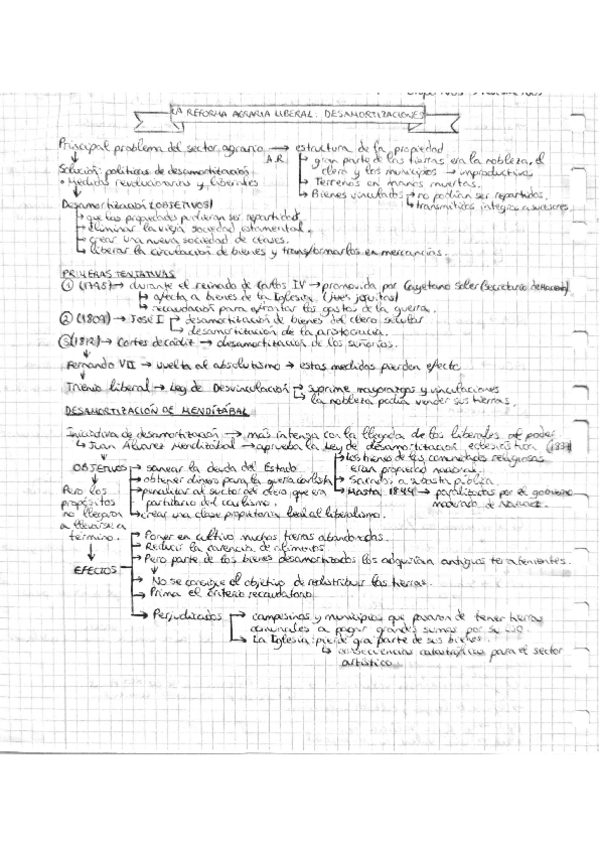 LA REFORMA AGRARIA LIBERAL: DESAMORTIZACIONES
Principal problema del sector agrario → estructura de la propiedad
A.R.
gran parte de las tierras era la nobleza, el
clero y los municipios → improductivas
Terrenos en manos muertas.
Bienes vinculados → no podían ser repartidos.
transmitidos íntegros a sucesores.
Solución: políticas de desamortización
• Medidas revolucionarias y liberales
Desamortización (OBJETIVOS)
que las propiedades pudieran ser repartidas
eliminar la vieja sociedad estamental.
crear una nueva sociedad de clases.
liberar la circulación de bienes y transformarlos en mercancías.
PRIMERAS TENTATIVAS
① (1798) → durante el reinado de Carlos IV → promovida por Cayetano Soler (Secretario de Hacienda)
afecta a bienes de la Iglesia (jesuitas)
recaudación para afrontar los gastos de la guerra.
② (1809) → José I → desamortización de bienes del clero secular
desamortización de la aristocracia.
③ (1812) → Cortes de Cádiz → desamortización de los señoríos.
Fernando VII → vuelta al absolutismo → estas medidas pierden efecto
Trienio liberal → Ley de Desvinculación → suprime mayorazgos y vinculaciones
la nobleza podía vender sus tierras.
DESAMORTIZACIÓN DE MENDIZÁBAL
Iniciativa de desamortización → más intensa con la llegada de los liberales al poder
Juan Álvarez Mendizábal → aprueba la Ley de desamortización eclesiástica
los bienes de las comunidades religiosas
eran propiedad nacional.
Sacados a subasta pública.
Hasta 1844 → paralizadas por el gobierno
moderado de Narváez.
OBJETIVOS → sanear la deuda del Estado.
obtener dinero para la guerra carlista
penalizar al sector del clero que era
partidario del carlismo.
crear una clase propietaria leal al liberalismo.
Pero los
propósitos
no llegaron
a llevarse a
término.
EFECTOS
Poner en cultivo muchas tierras abandonadas.
Reducir la carencia de alimentos
Pero parte de los bienes desamortizados los adquirían antiguos terratenientes.
No se consigue el objetivo de redistribuir las tierras.
Prima el criterio recaudatorio
Perjudicados → campesinos y municipios que pasaron de tener tierras
comunales a pagar grandes sumas por su uso.
La Iglesia: pierde gran parte de sus bienes.
consecuencias catastróficas para el sector
artístico.